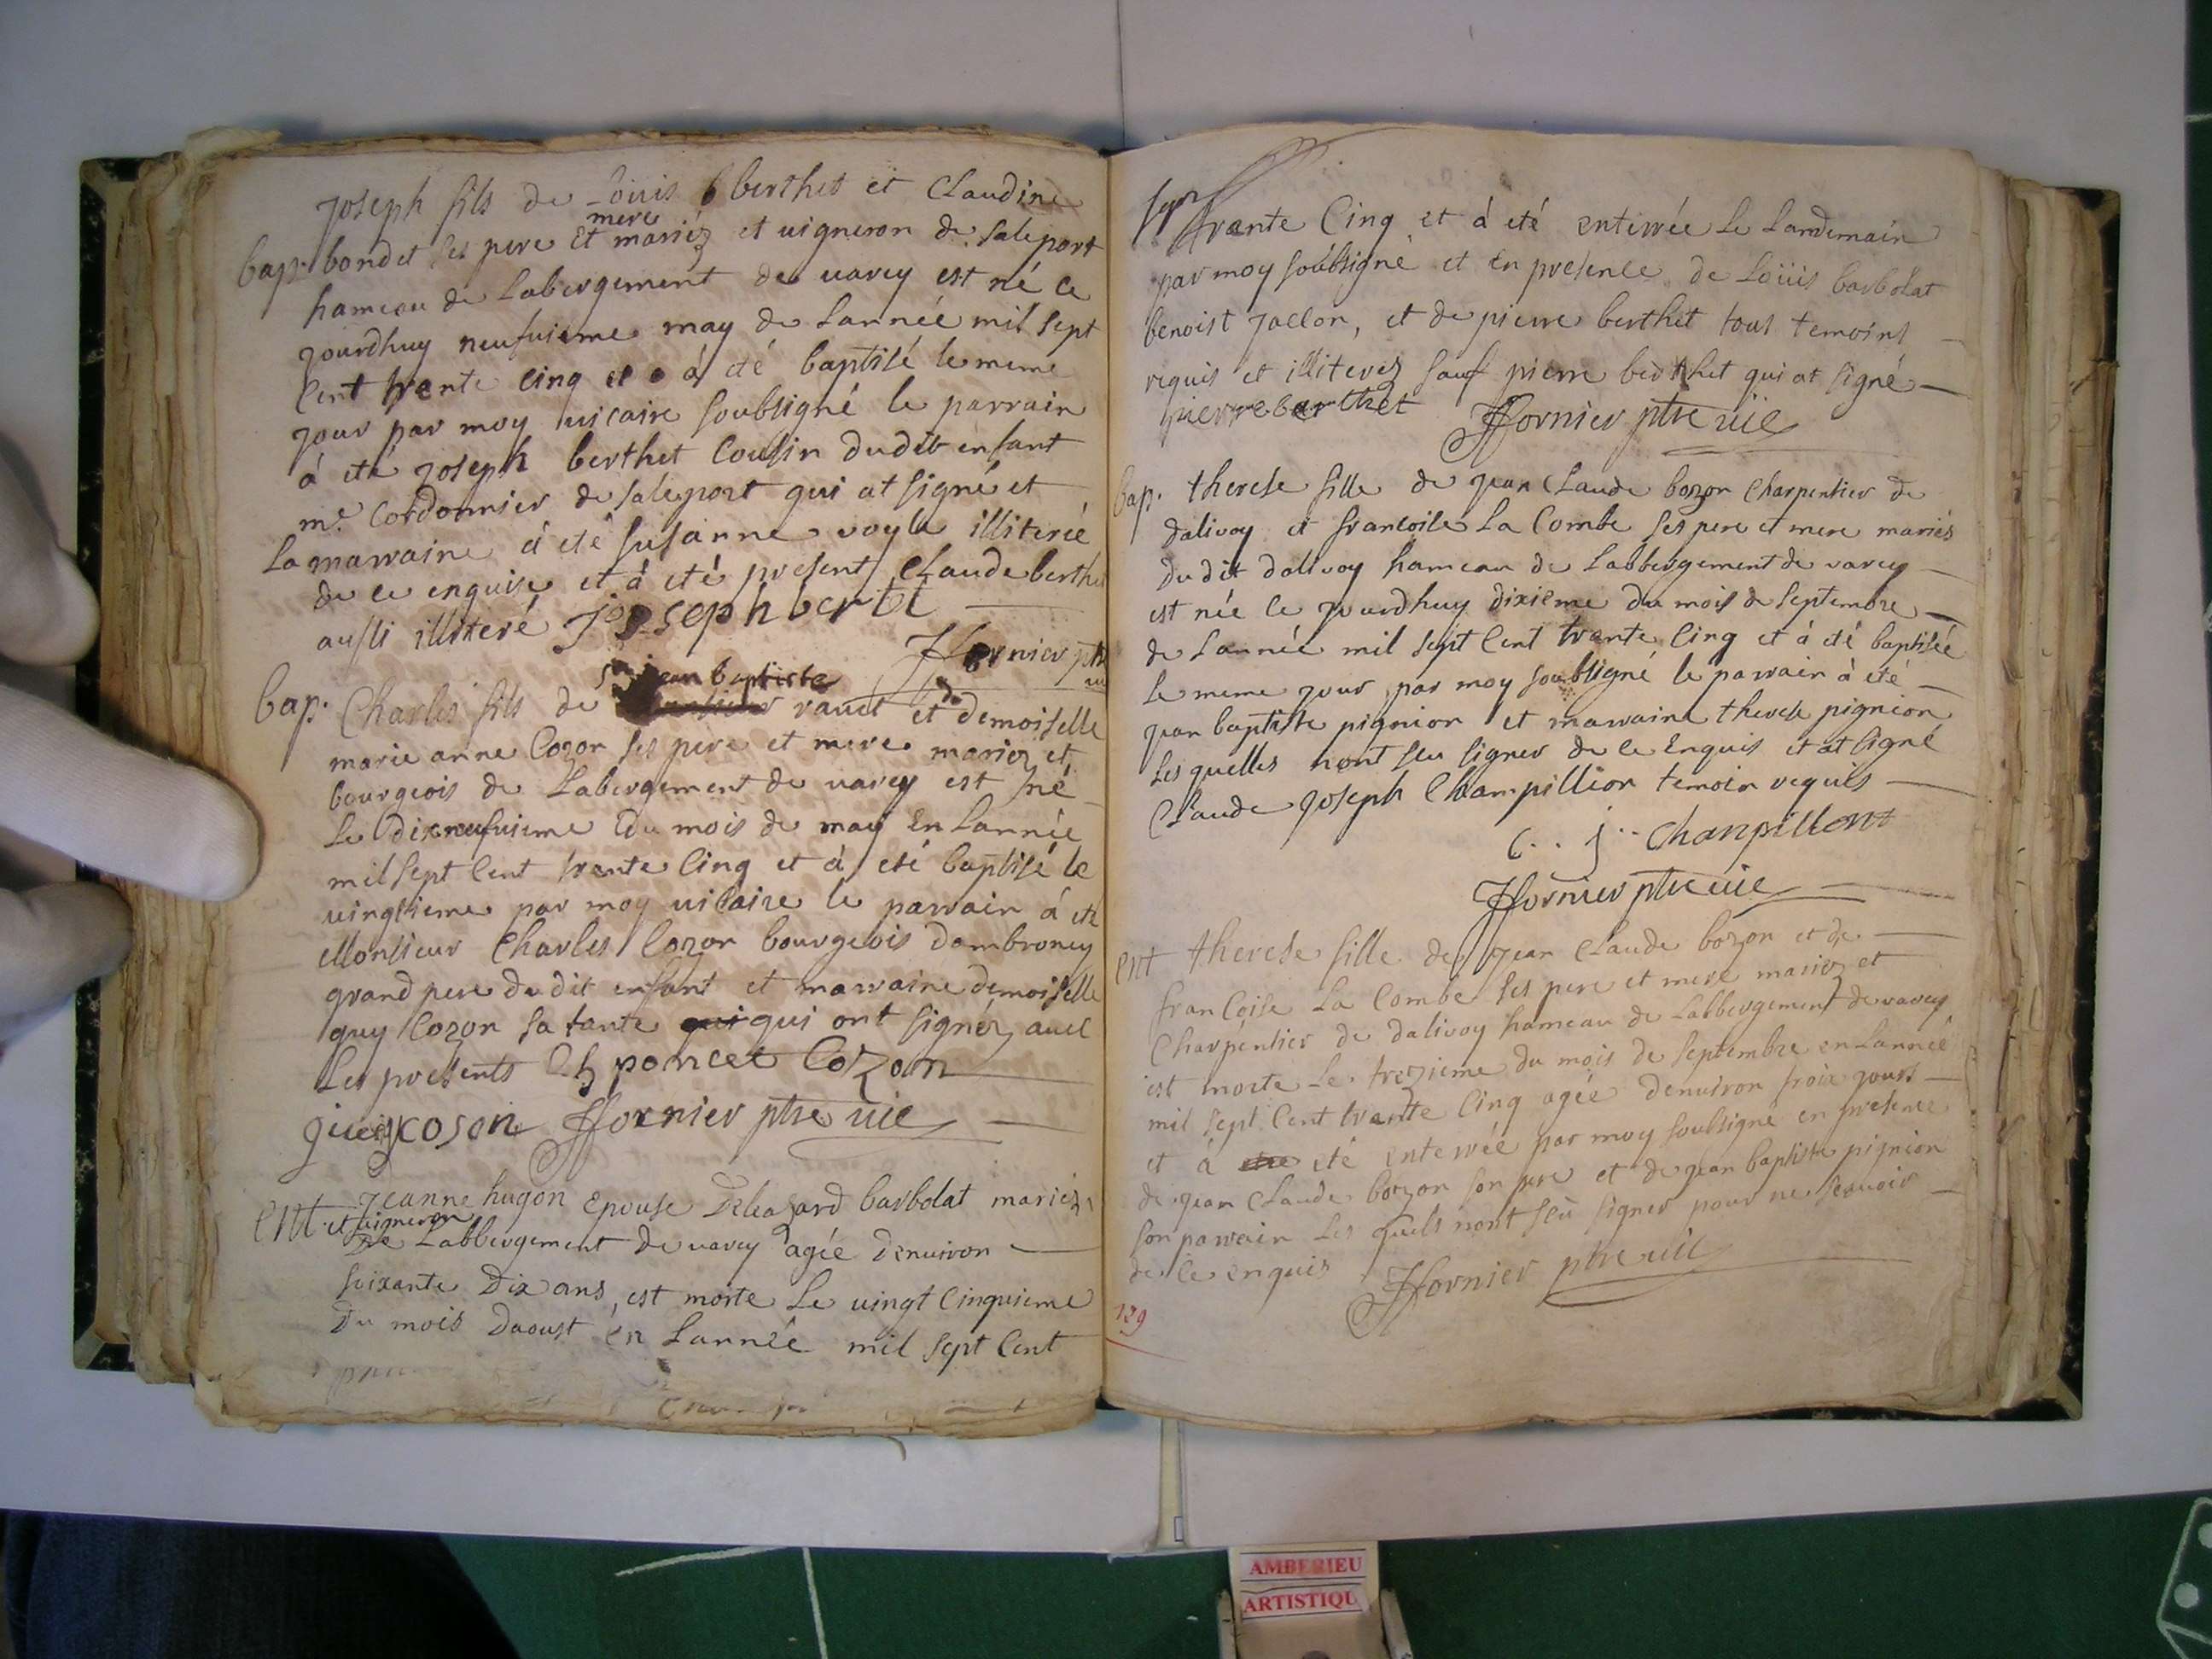 Joseph fils de Loüis berthet et Claudine
mere
bap. bondet ses pere et mariéz et uigneron de saleport
hameau de Labergement de uarey est né ce
jourdhuy neufuieme may de Lannée mil sept
Cent trente cinq et à été baptisé le meme
jour par moy uicaire soubsigné le parrain
à eté joseph berthet Cousin dudit enfant
me. Cordonnier de saleport qui at signé et
La marraine à eté susanne voyle illiterée
de ce enquise et à eté present Claude berthet
aussi illiteré Joseph bertet
ffornier ptre
sr jean baptiste
bap. Charles fils de rauet et de demoiselle
marie anne Cozon ses pere et mere mariez et
bourgeois de Labergement de uarey est né
Le dixneufuieme du mois de may en Lannée
mil sept Cent trente Cinq et à eté baptisé le
uingtieme par moy uicaire le parrain à eté
Monsieur Charles Cozon bourgeois dambroney
grand pere dudit enfant et marraine demoiselle
guy Cozon sa tante qui qui ont signéz auec
Les presents Ch poncet Cozon
guy coson ffornier ptre uic
Ent Jeanne hugon Epouse Deleazard barbolat mariéz
et uigneron
De Labbergement de uarey agée denuiron
soixante dix ans, est morte Le uingt Cinquieme
Du mois Daoust en Lannée mil sept Cent
trante Cinq et à eté enterrée Le Landemain
par moy soubsigné et en presence de Loüis barbolat
benoist jaclon, et de pierre berthet tous temoins
requis et illiterez sauf pierre berthet qui at signé
pierre berthet ffornier ptre uic
bap. therese fille de jean Claude bozon Charpentier de
dalivoy et francoise La Combe ses pere et mere mariés
dudit dalivoy hameau de Labbergement de varey
est née ce jourdhuy dixieme du mois de septembre
de Lannée mil sept Cent trante Cinq et à eté baptisée
le meme jour par moy soubsigné le parrain à eté
jean baptiste pignion et marraine therese pignion
Les quelles nont seu signer de ce Enquis et at signé
Claude joseph Champillion temoin requis
C.. j.. Chanpillont
ffornier ptre uic
Ent therese fille de jean Claude bozon et de
francoise La Combe ses pere et mere mariez et
Charpentier de dalivoy hameau de Labbergement de varey
est morte Le trezieme du mois de septembre en Lannée
mil sept Cent trante Cinq agée denuiron trois jours
et à eté enterrée par moy soubsigné en presence
de jean Claude bozon son pere et de jean baptiste pignion
son parrain Les quels nont seü signer pour ne scauoir
de ce enquis ffornier ptre uic
129
AMBERIEU
ARTISTIQU